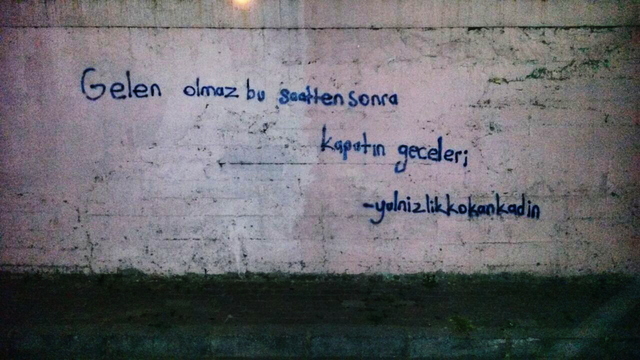 Gelen olmaz bu saatten sonra
kapatın geceleri
-yalnizlikkokankadin